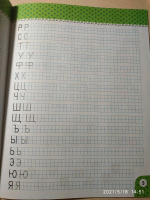 Р Р
С С
Т Т
У У
Ф Ф
Х Х
Ц Ц
Ч Ч
Ш Ш
Щ Щ
Ъ Ъ
Ы Ы
Ь Ь
Э Э
Ю Ю
Я Я
2021/5/18 14:51